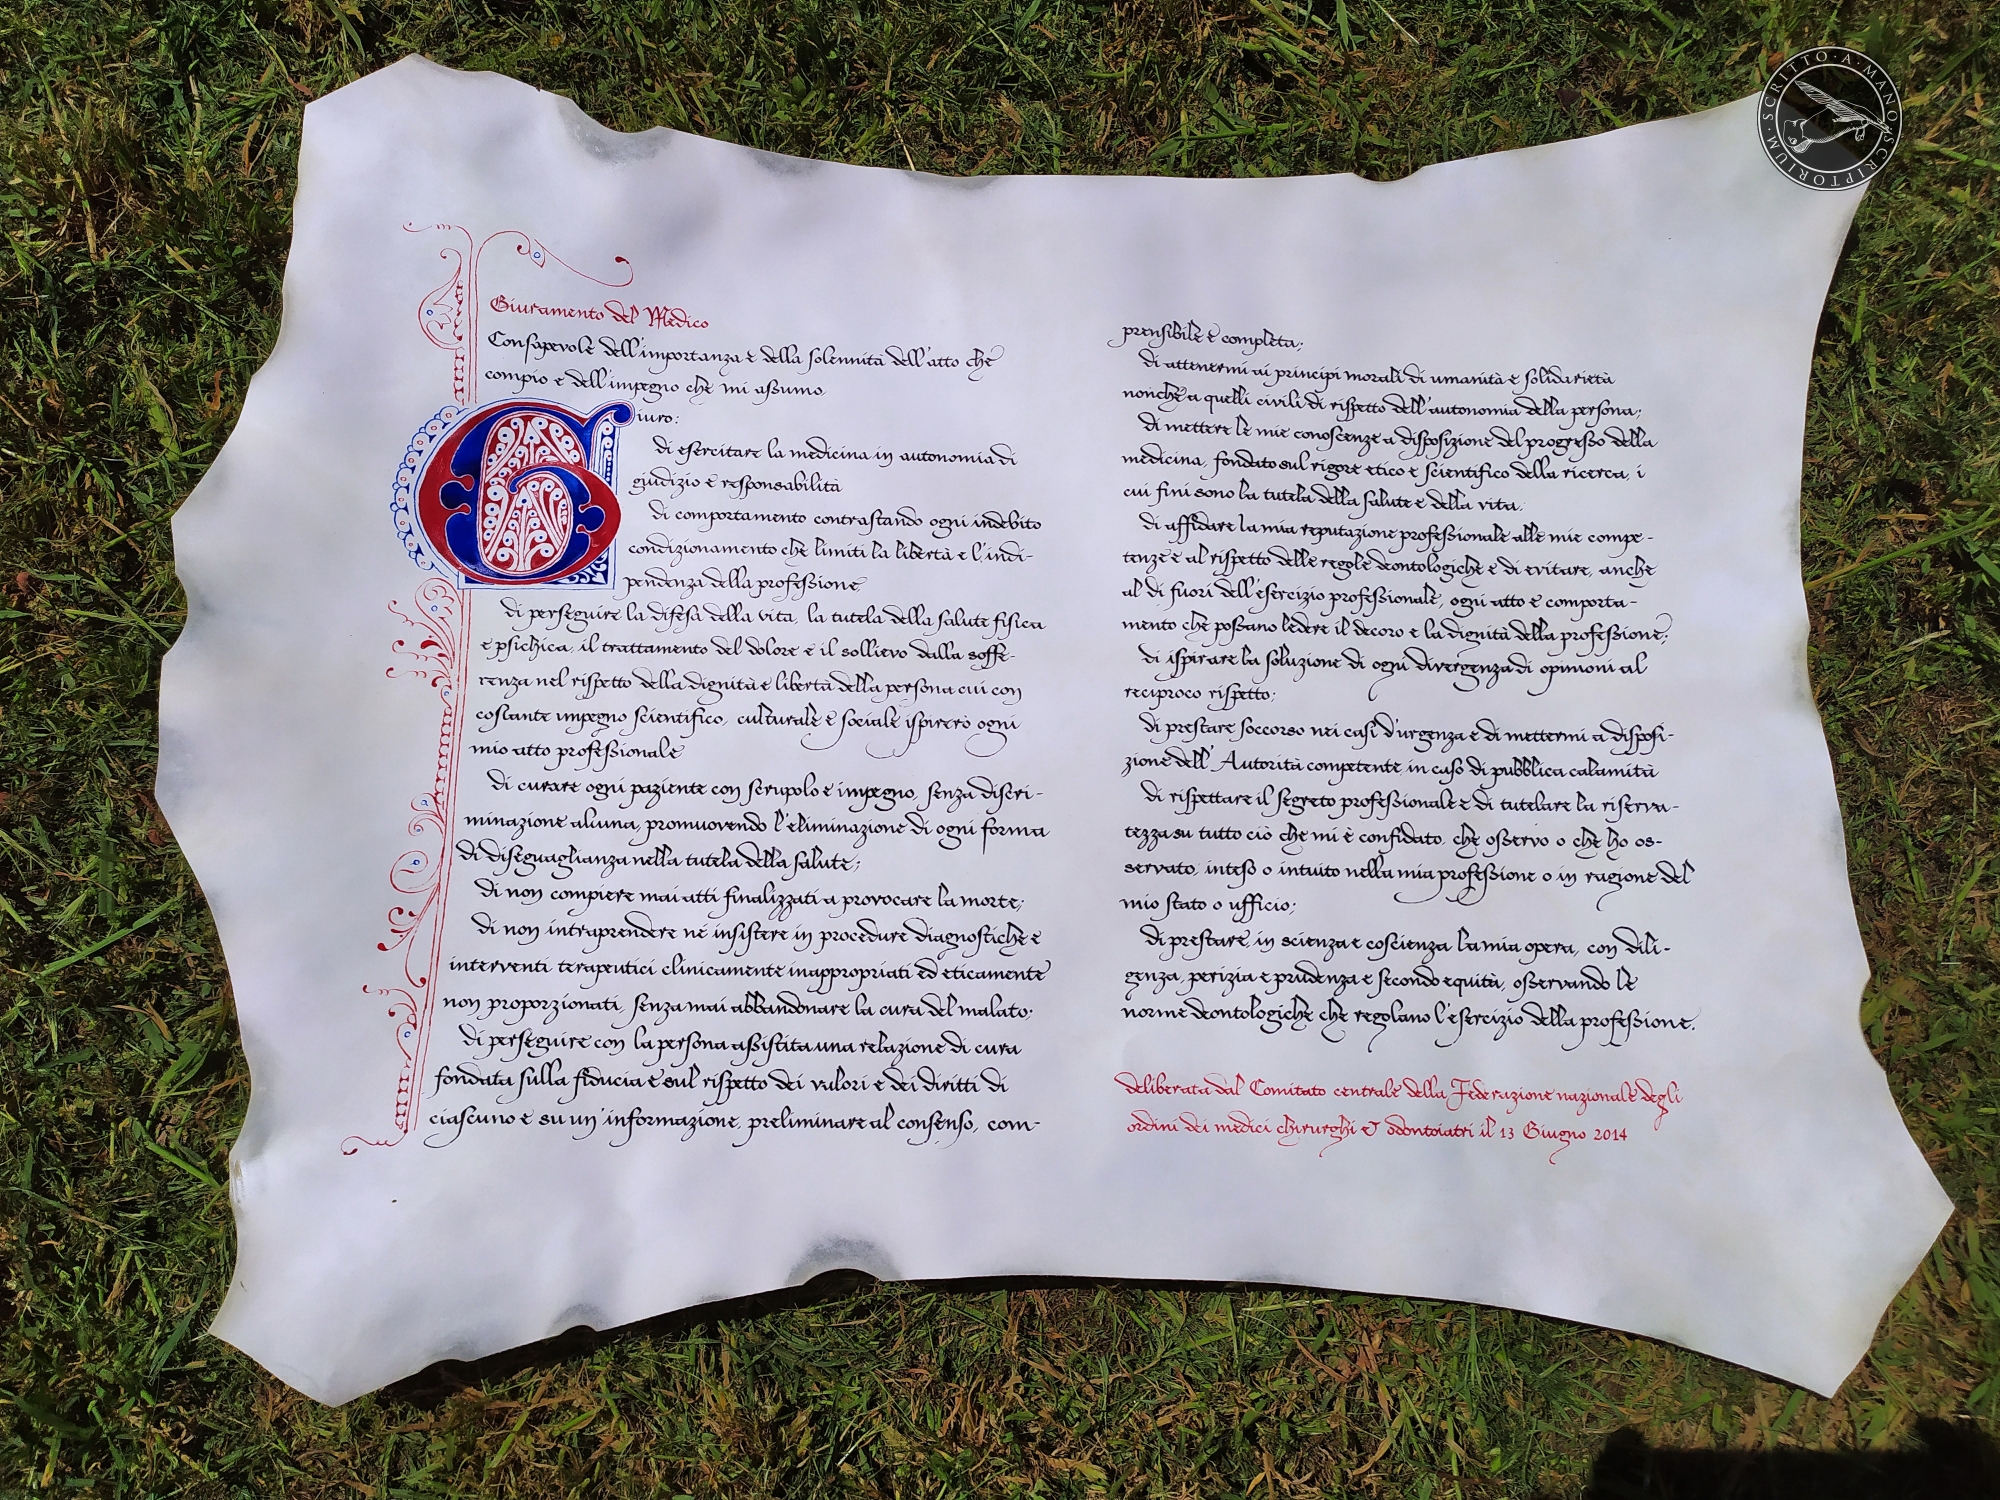 Giuramento del Medico
Consapevole dell'importanza e della solennità dell'atto che
compio e dell'impegno che mi assumo,
Giuro:
di esercitare la medicina in autonomia di
giudizio e responsabilità
di comportamento contrastando ogni indebito
condizionamento che limiti la libertà e l'indi-
pendenza della professione
di perseguire la difesa della vita, la tutela della salute fisica
e psichica, il trattamento del dolore e il sollievo dalla soffe-
renza nel rispetto della dignità e libertà della persona cui con
costante impegno scientifico, culturale e sociale ispirerò ogni
mio atto professionale
di curare ogni paziente con scrupolo e impegno, senza discri-
minazione alcuna, promuovendo l'eliminazione di ogni forma
di diseguaglianza nella tutela della salute;
di non compiere mai atti finalizzati a provocare la morte;
di non intraprendere né insistere in procedure diagnostiche e
interventi terapeutici clinicamente inappropriati ed eticamente
non proporzionati, senza mai abbandonare la cura del malato;
di perseguire con la persona assistita una relazione di cura
fondata sulla fiducia e sul rispetto dei valori e dei diritti di
ciascuno e su un'informazione, preliminare al consenso, com-
prensibile e completa;
di attenermi ai principi morali di umanità e solidarietà
nonché a quelli civili di rispetto dell'autonomia della persona;
di mettere le mie conoscenze a disposizione del progresso della
medicina, fondato sul rigore etico e scientifico della ricerca, i
cui fini sono la tutela della salute e della vita;
di affidare la mia reputazione professionale alle mie compe-
tenze e al rispetto delle regole deontologiche e di evitare, anche
al di fuori dell'esercizio professionale, ogni atto e comporta-
mento che possano ledere il decoro e la dignità della professione;
di ispirare la soluzione di ogni divergenza di opinioni al
reciproco rispetto;
di prestare soccorso nei casi d'urgenza e di mettermi a disposi-
zione dell'Autorità competente, in caso di pubblica calamità
di rispettare il segreto professionale e di tutelare la riserva-
tezza su tutto ciò che mi è confidato, che osservo o che ho os-
servato, inteso o intuito nella mia professione o in ragione del
mio stato o ufficio;
di prestare, in scienza e coscienza la mia opera, con dili-
genza, perizia e prudenza e secondo equità, osservando le
norme deontologiche che regolano l'esercizio della professione.
deliberata dal Comitato centrale della Federazione nazionale degli
ordini dei medici chirurghi e odontoiatri il 13 Giugno 2014
SCRITTO·A·MANO·SCRIPTORIUM·